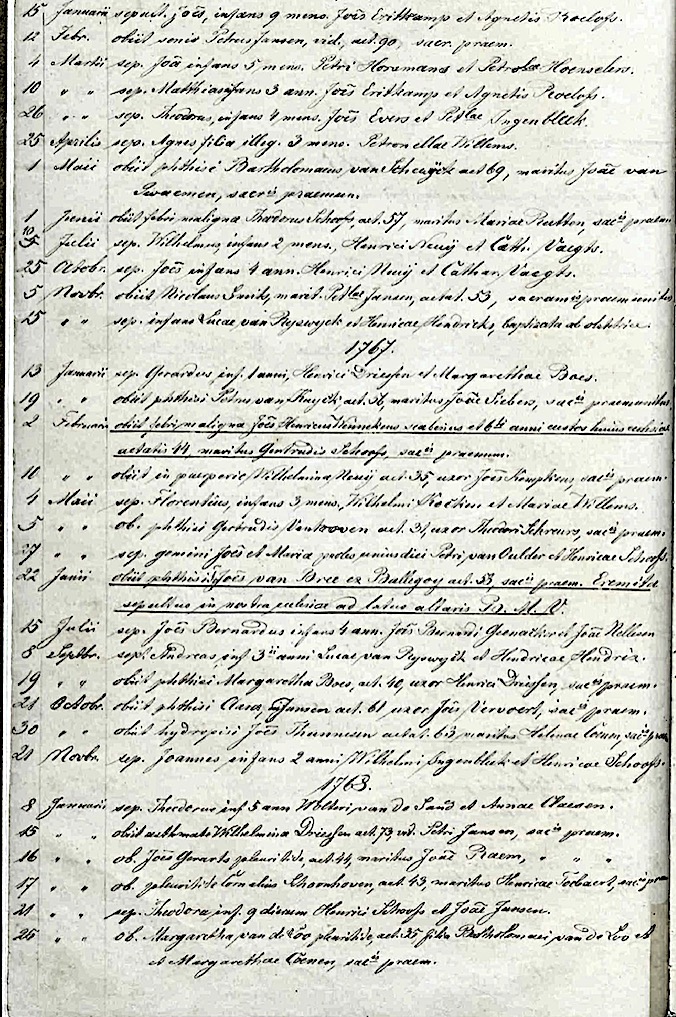 15 Januarii sepult. Joēs, infans 9 mens. Joīs Eritkamp et Agnetis Roelofs.
12 Febr. obiit senio Petrus Jansen, vid., aet. 90, sacr. praem.
4 Martii sep. Joā infans 5 mens. Petri Horsmans et Petrolae Hoenselers.
10 " " sep. Matthias infans 3 ann. Joīs Eritkamp et Agnetis Roelofs.
26 " " sep. Theodora, infans 4 mens. Joīs Evers et Petlae Ingenbleek.
25 Aprilis sep. Agnes filia illeg. 3 mens. Petronellae Willems.
1 Maii obiit phthisi Bartholomaeus van Schewyck aet 69, maritus Joāe van
Swaemen, sacris praemun.
1 Junii obiit febri maligna Theodorus Schoofs, aet. 57, maritus Mariae Rutten, sacis praem
Julii sep. Wilhelmus, infans 2 mens. Henrici Neuij et Cath. Vaegts.
25 Octobr. sep. Joēs infans 4 ann. Henrici Neuij et Cathar. Vaegts.
5 Novbr. obiit Nicolaus Smits, marit. Petlae Jansen, aetat. 53, sacramis praemunitus
25 " " sep. infans Lucae van Ryswyck et Henricae Hendricks, baptizata ab obstetrice.
1767.
13 Januarii sep. Gerardus, inf. 1 anni, Henrici Driessen et Margarethae Boes.
19 " " obiit phthisi Petrus van aet. 56, maritus Joāe Siebers, sacis praemunitus.
2 Februarii obiit febri maligna Joēs Henricus Vennekens scabinus et 6tis anni custos huius ecclesiae
aetatis 44, maritus Gertrudis Schoofs, sacis praemun.
10 " " obiit in puerperio Wilhelmina Neuij aet. 35, uxor Joīs Kempkens, sacis praem.
4 Maii sep. Florentius, infans 3 mens. Wilhelmi et Mariae Willems.
5 " " ob. phthisi Gertrudis Venhoven aet. 31, uxor Theodori Schreurs, sacis praem.
27 " " sep. gemini Joēs et Maria proles unius diei Petri van Oulder et Henricae Schoofs.
22 Junii obiit phthisi Joēs van Bree ex Ballegoy aet. 53, sacis praem. Eremita
sepultus in nostra ecclesia ad latus altaris B. M. V.
15 Julii sep. Joēs Bernardus infans 4 ann. Joīs Bernardi et Joāe Nellisen
8 Septbr. sept. Andreas, inf. 3ii anni Lucae van Ryswyck et Hendricae Hendrix.
19 " " obiit phthisi Margaretha Boes, aet. 40, uxor Henrici Driessen, sacis praem.
21 Octobr. obiit phthisi Jansen aet. 61 uxor Joīs Vervoort, sacis praem.
30 " " obiit hydropisi Joēs Theunissen aetat. 63 maritus Helenae Coenen, sacis praem
21 Novbr. sep. Joannes infans 2 anni Wilhelmi Ingenbleek et Henricae Schoofs.
1768.
8 Januarii sep. Theodorus inf. 5 ann Wolteri van de Sand et Annae Claesen.
15 " " obiit asthmate Wilhelmina Driessen aet. 73, vid. Petri Jansen, sacis praem.
16 " " ob. Joēs Gerarts pleuritide, aet. 44, maritus Joāe Praem, " " "
17 " " ob. pleuritide Cornelius Schoonhoven, aet. 43, maritus Henricae Toebaert, sacis praem
21 " " sep. Theodora inf. 9 dierum Henrici Schoofs et Joāe Jansen.
26 " " ob. Margaretha van de Loo pleuritide, aet. 35 filia Bartholomaei van de Loo et
et Margarethae Coenen, sacis praem.